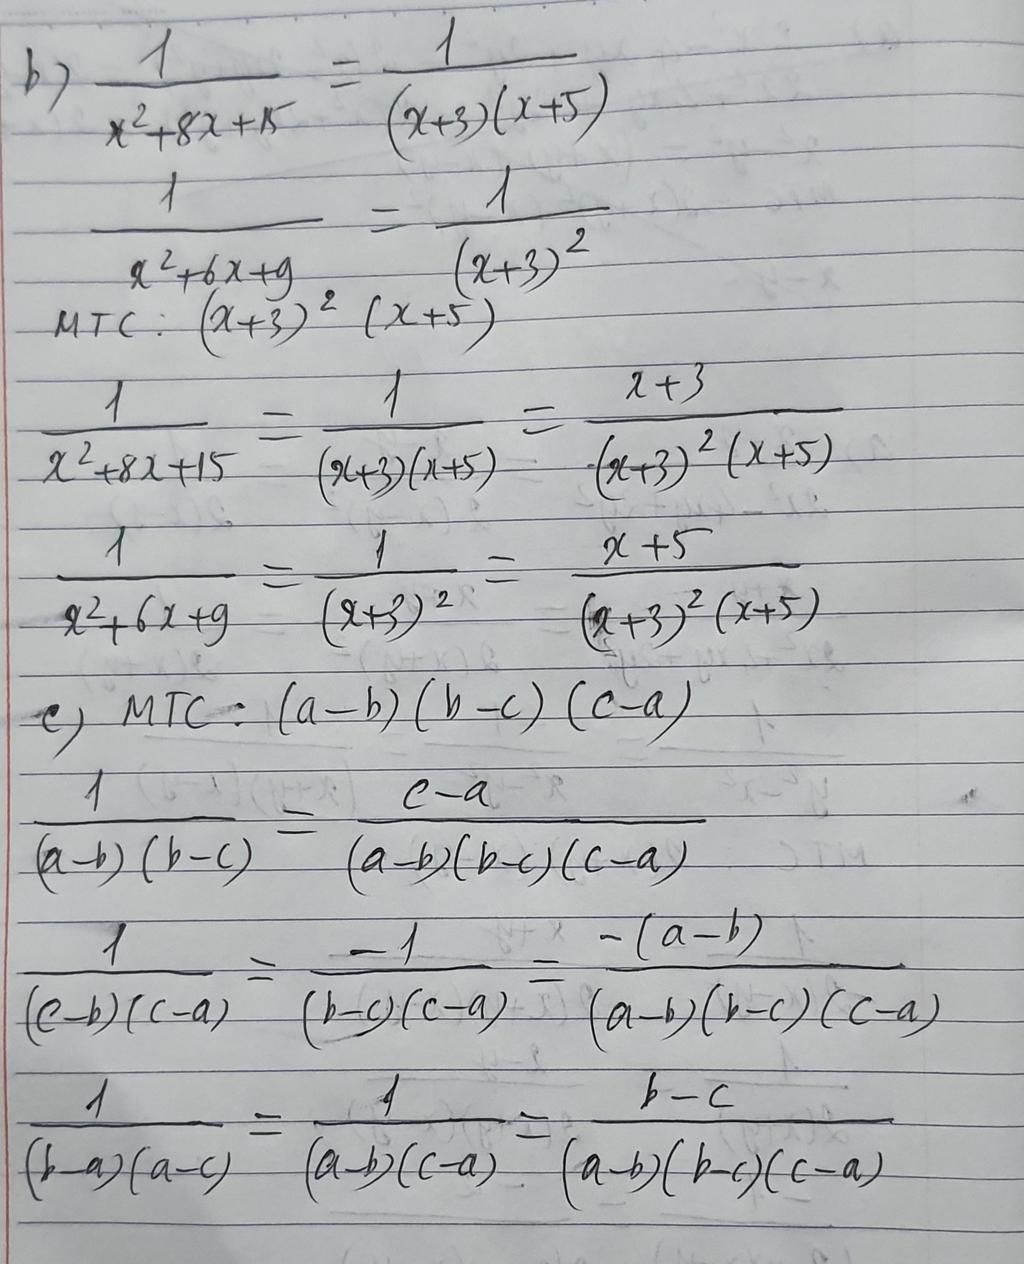 b) 1/(x²+8x+15) = 1/((x+3)(x+5))
1/(x²+6x+9) = 1/(x+3)²
MTC: (x+3)² (x+5)
1/(x²+8x+15) = 1/((x+3)(x+5)) = (x+3)/((x+3)²(x+5))
1/(x²+6x+9) = 1/(x+3)² = (x+5)/((x+3)²(x+5))
c) MTC: (a-b)(b-c)(c-a)
1/((a-b)(b-c)) = (c-a)/((a-b)(b-c)(c-a))
1/((c-b)(c-a)) = -1/((b-c)(c-a)) = -(a-b)/((a-b)(b-c)(c-a))
1/((b-a)(a-c)) = 1/((a-b)(c-a)) = (b-c)/((a-b)(b-c)(c-a))